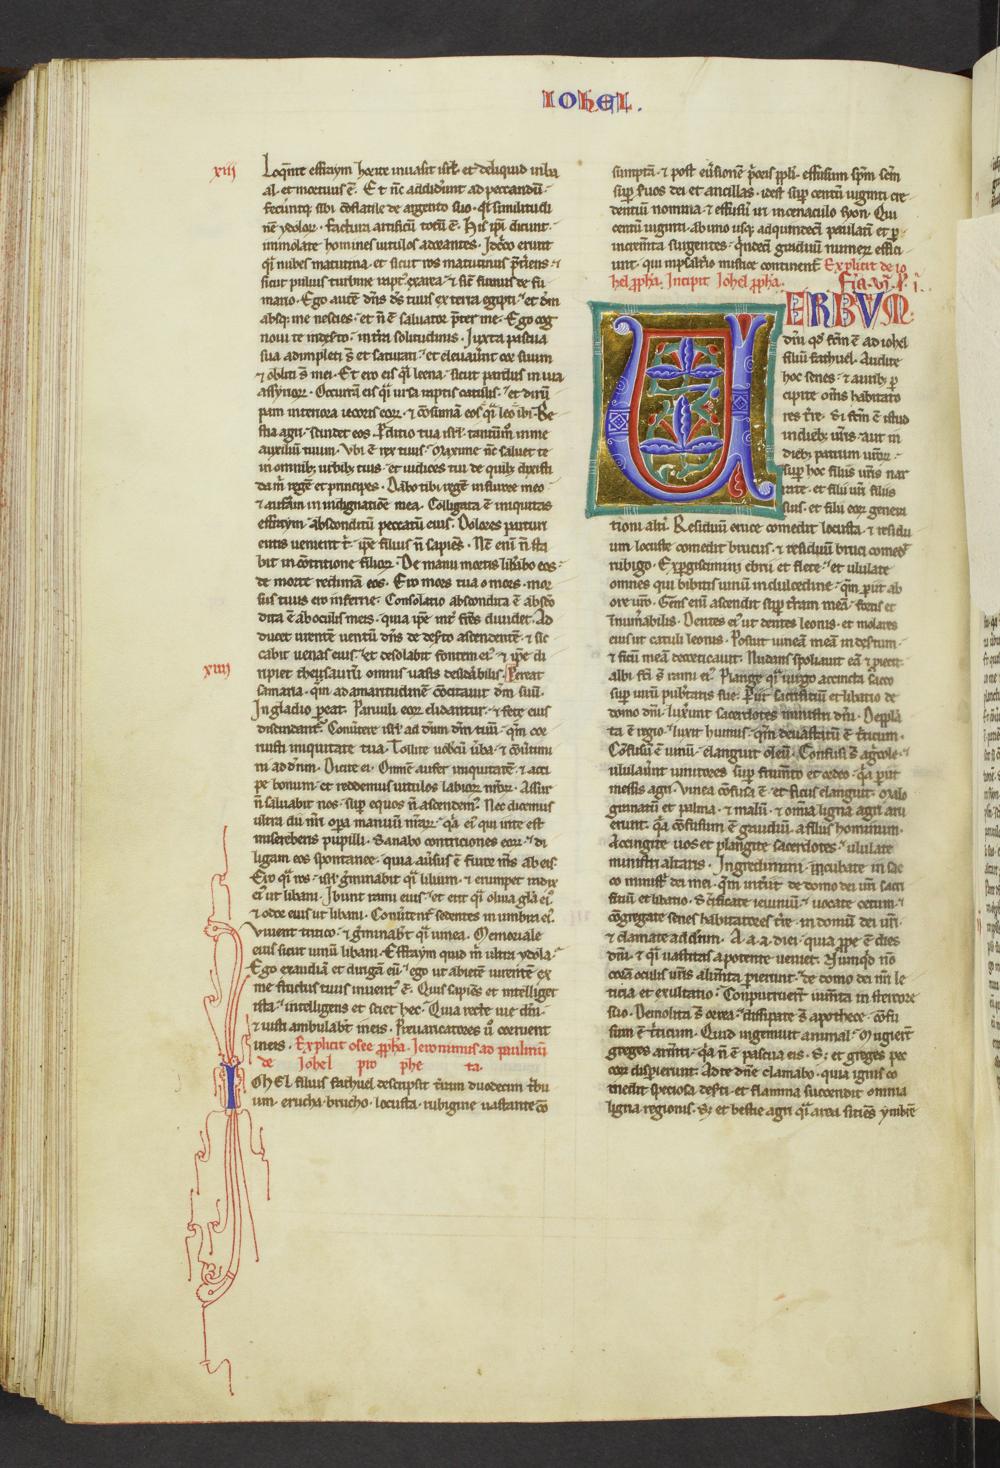 IOHEL.
xiii
Loqn̄te effraym horror inuasit isrl̄. et deliquid in ba
al. et mortuus ē. Et nc̄ addider̄unt ad peccandū.
fecer̄untq; sibi c̄flatile de argento suo. qi similitudi
nē ydolor. factura artificū totū ē. His ipi dicunt.
immolate homines uitulos adorantes. Idc̄o erunt
qi nubes matutina. et sicut ros matutinus p̄teriens.
sicut puluis turbine rapt' ex area. et sic̄ fumus de fu
mario. Ego autē dn̄s ds̄ tuus ex terra egipti. et dm̄
absq; me nescies. et n̄ ē saluator p̄ter me. Ego cog
noui te in def̄to. in tr̄a solitudinis. Juxta pascua
sua adimpleti s̄t et saturati. et eleuauer̄unt cor suum
et obliti s̄t mei. Et ero eis qi leena. sicut pardus in uia
assyrior. Occurrā eis qi ursa raptis catulis. et dirū
pam interiora iecoris eor. et c̄sumā eos qi leo ibi. Be
stia agri scindet eos. P̄ditio tua isrl̄. tantūm in me
auxiliū tuum. Vbi ē rex tuus. Maxime nc̄ saluet te
in omnib; urbib; tuis. et iudices tui de quib; dixisti
da m̄ regē et principes. Dabo tibi regē in furore meo.
et auferam in indignatiōne mea. Colligata ē iniquitas
effraym. absconditū peccatū eius. Dolores parturi
entis uenient ei. ipe filius n̄ sapiēs. Nc̄ eni n̄ sta
bit in c̄tritione filior. De manu mortis lib̄abo eos.
de morte redimā eos. Ero mors tua o mors. mor
sus tuus ero inferne. Consolatio abscondita ē absc̄o
dita ē ab oculis meis. quia ipe int' fr̄es diuidet. Ad
ducet urentē uentū dn̄s de def̄to ascendentē. et sic
cabit uenas eius. et desolabit fontem ei'. et ipe di
xiiii
ripiet thesaurū omnis uasis desid̄abilis. Pereat
samaria. qm̄ ad amaritudinē c̄citauit dm̄ suū.
In gladio p̄eat. Paruuli eor elidantur. et fete eius
discindant'. Conu̇tere isrl̄ ad dn̄m dm̄ tuū. qm̄ cor
ruisti iniquitate tua. Tollite uobc̄ū ūba. et c̄ūtimi
ni ad dn̄m. Dicite ei. Omnē aufer iniquitatē. et acci
pe bonum. et reddemus uitulos labior nr̄or. Assur
n̄ saluabit nos. sup equos n̄ ascendem'. Nec dicemus
ultra dii nr̄i opa manuū nr̄ar. qa ei' qui in te est
misereberis pupilli. Sanabo contriciones eor. di
ligam eos spontanee. quia au̇sus ē furor ms̄ ab eis.
Ero qi ros. isrl̄ ḡminabit qi lilium. et erumpet radix
ei' ut libani. Ibunt rami eius. et erit qi oliua gla ei'.
et odor eius ut libani. Conu̇tent' sedentes in umbra ei'.
uiuent tritico. et ḡminabt qi uinea. Memoriale
eius sicut uinū libani. Effraym quid m̄ ultra ydola.
Ego exaudiā et dirigā eū. ego ut abietē uirentē ex
me fructus tuus inuent' ē. Quis sapiēs et intelliget
ista. intelligens et sciet hec. Quia recte uie dn̄i.
et iusti ambulabt in eis. Preuaricatores ū corruent
in eis. Explicit osee ppha. Ieronimus ad paulinū
de Iohel pro phe ta.
IOHEL filius fathuel descripsit tr̄am duodecim t̄bu
um. erucha. brucho. locusta. rubigine uastante c̄o
sumptā. et post eūsionē p̄oris ppli. effusum spm̄ scm̄
sup suos dei et ancillas. idest sup centū uiginti cre
dentiū nomina. et effusū iri in cenaculo syon. Qui
centū uiginti. ab uno usq; ad quindecī paulatī et p
incrementa surgentes. q̄ndecī graduū numer effici
unt. qui in psalt̄io mistice continent'. Explicit de io
hel ppha. Incipit Iohel ppha. Fīa. vi. P. i.
UERBVM
dn̄i qd̄ fcm̄ ē ad iohel
filiū fathuel. Audite
hoc senes. et aurib; p
cipite oms̄ habitato
res t̄re. Si fcm̄ ē istud
in dieb; ur̄is. aut in
dieb; patrum ur̄or.
Sup hoc filiis ur̄is nar
rate. et filii ur̄i filiis
suis. et filii eor genera
tioni alti. Residuū eruce comedit locusta. et residu
um locuste comedit brucus. et residuū bruci comed'
rubigo. Expgiscimini ebrii et flete. et ululate
omnes qui bibitis uinū in dulcedine. qm̄ p̄iit ab
ore ur̄o. Gens eni ascendit sup tr̄am meā. fortis et
innumabilis. Dentes ei' ut dentes leonis. et molares
eius ut catuli leonis. Posuit uineā meā in desertum.
et ficū meā decorticauit. Nudans spoliauit eā et proiec.
albi fc̄i s̄t rami ei'. Plange qi uirgo accincta sacco
sup uirū pub̄tatis sue. Piit sacrificiū et libatio de
domo dn̄i. luxer̄unt sacerdotes ministri dn̄i. Depp̄la
ta ē regio. luxit humus. qm̄ deuastatū ē tr̄icum.
Confusū ē uinū. elanguit oleū. Confusi s̄t ag̊cole.
ululauer̄unt uinitores sup frum̄to et ordeo. qa p̄iit
messis agri. Vinea c̄fusa ē. et ficus elanguit. malo
granatū et palma. et malū. et omīa ligna agri aru
erunt. qa c̄fusum ē gaudiū a filiis hominum.
Accingite uos et plangite sacerdotes. ululate
ministri altaris. Ingredimini. incubate in sac
co ministri dei mei. qm̄ int̄iit de domo dei ur̄i sacri
ficiū et libatio. Scīficate ieiuniū. uocate cetum.
c̄gregate senes habitatores t̄re. in domū dei ur̄i.
et clamate ad dn̄m. A. a. a. diei. quia p̄pe ē dies
dn̄i. et qi uastitas a potente ueniet. Nunqd̄ n̄o
corā oculis ur̄is alim̄ta p̄ierunt. de domo dei nr̄i le
ticia et exultatio. Conputruer̄t iumēta in stercore
suo. Demolita s̄t orrea. dissipate s̄t apothece. c̄fu
sum ē tr̄icum. Quid ingemuit animal. Mugier̄t
greges arm̄ti. qa n̄ ē pascua eis. S; et greges pec
cor disp̄ierunt. Ad te dn̄e clamabo. quia ignis co
medit speciosa def̄ti. et flamma succendit omnia
ligna regionis. S; et bestie agri qi area sitiēs ymbrē